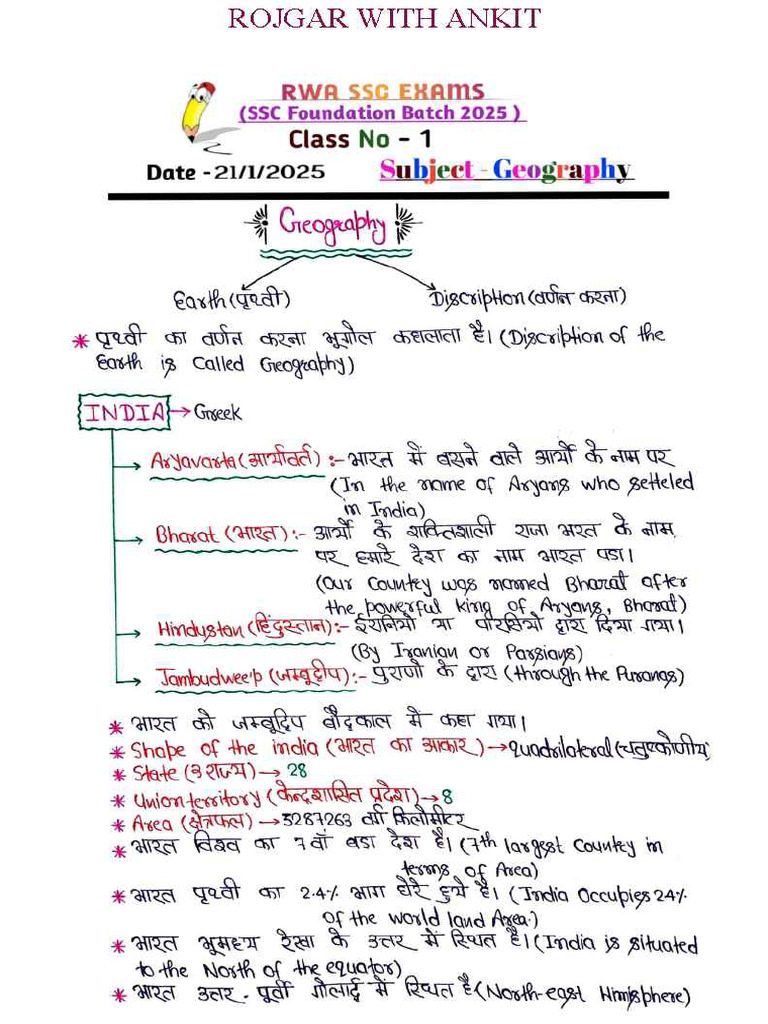 ROJGAR WITH ANKIT
RWA SSC EXAMS
(SSC Foundation Batch 2025 )
Class No - 1
Date -21/1/2025 Subject - Geography
Geography
Earth (पृथ्वी) Discription (वर्णन करना)
* पृथ्वी का वर्णन करना भूगोल कहलाता है। (Discription of the
Earth is Called Geography)
INDIA → Greek
→ Aryavarta (आर्यावर्त) :- भारत में बसने वाले आर्यो के नाम पर
(In the name of Aryans who setteled
in India)
→ Bharat (भारत) :- आर्यो के शक्तिशाली राजा भरत के नाम
पर हमारे देश का नाम भारत पडा।
(Our Country was named Bharat after
the powerful king of Aryans, Bharat)
→ Hindustan (हिंदुस्तान) :- ईरानियो या पारसियो द्वारा दिया गया।
(By Iranian or Parsians)
→ Jambudweep (जम्बूद्वीप) :- पुराणो के द्वारा (through the Puranas)
* भारत को जम्बूद्विप बौद्धकाल में कहा गया।
* Shape of the india (भारत का आकार) → quadrilateral (चतुष्कोणीय)
* State (राज्य) → 28
* Union territory (केन्द्रशासित प्रदेश) → 8
* Area (क्षेत्रफल) → 3287263 वर्ग किलोमीटर
* भारत विश्व का 7वाँ बडा देश है। (7th largest Country in
terms of Area)
* भारत पृथ्वी का 2.4% भाग घेरे हुये है। (India Occupies 2.4%
of the world land Area.)
* भारत भूमध्य रेखा के उत्तर में स्थित है। (India is situated
to the North of the equator)
* भारत उत्तर - पूर्वी गोलार्द्ध में स्थित है (North-east Hmisphere)